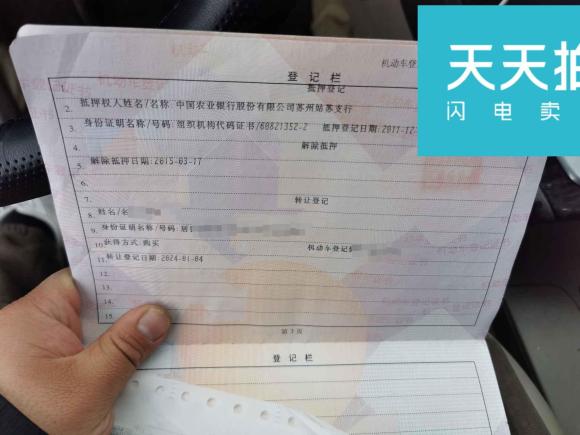 天天拍
闪电卖
机动车登
登记栏
1. 抵押登记
2. 抵押权人姓名/名称:中国农业银行股份有限公司苏州姑苏支行
3. 身份证明名称/号码:组织机构代码证书/60821352-2 抵押登记日期:2011-12-
4. 解除抵押
5. 解除抵押日期:2015-03-17
6.
7. 转让登记
8. 姓名/名
9. 身份证明名称/号码:居
10. 获得方式:购买 机动车登记
11. 转让登记日期:2024-01-04
12.
13.
14.
15.
第3页
登记栏